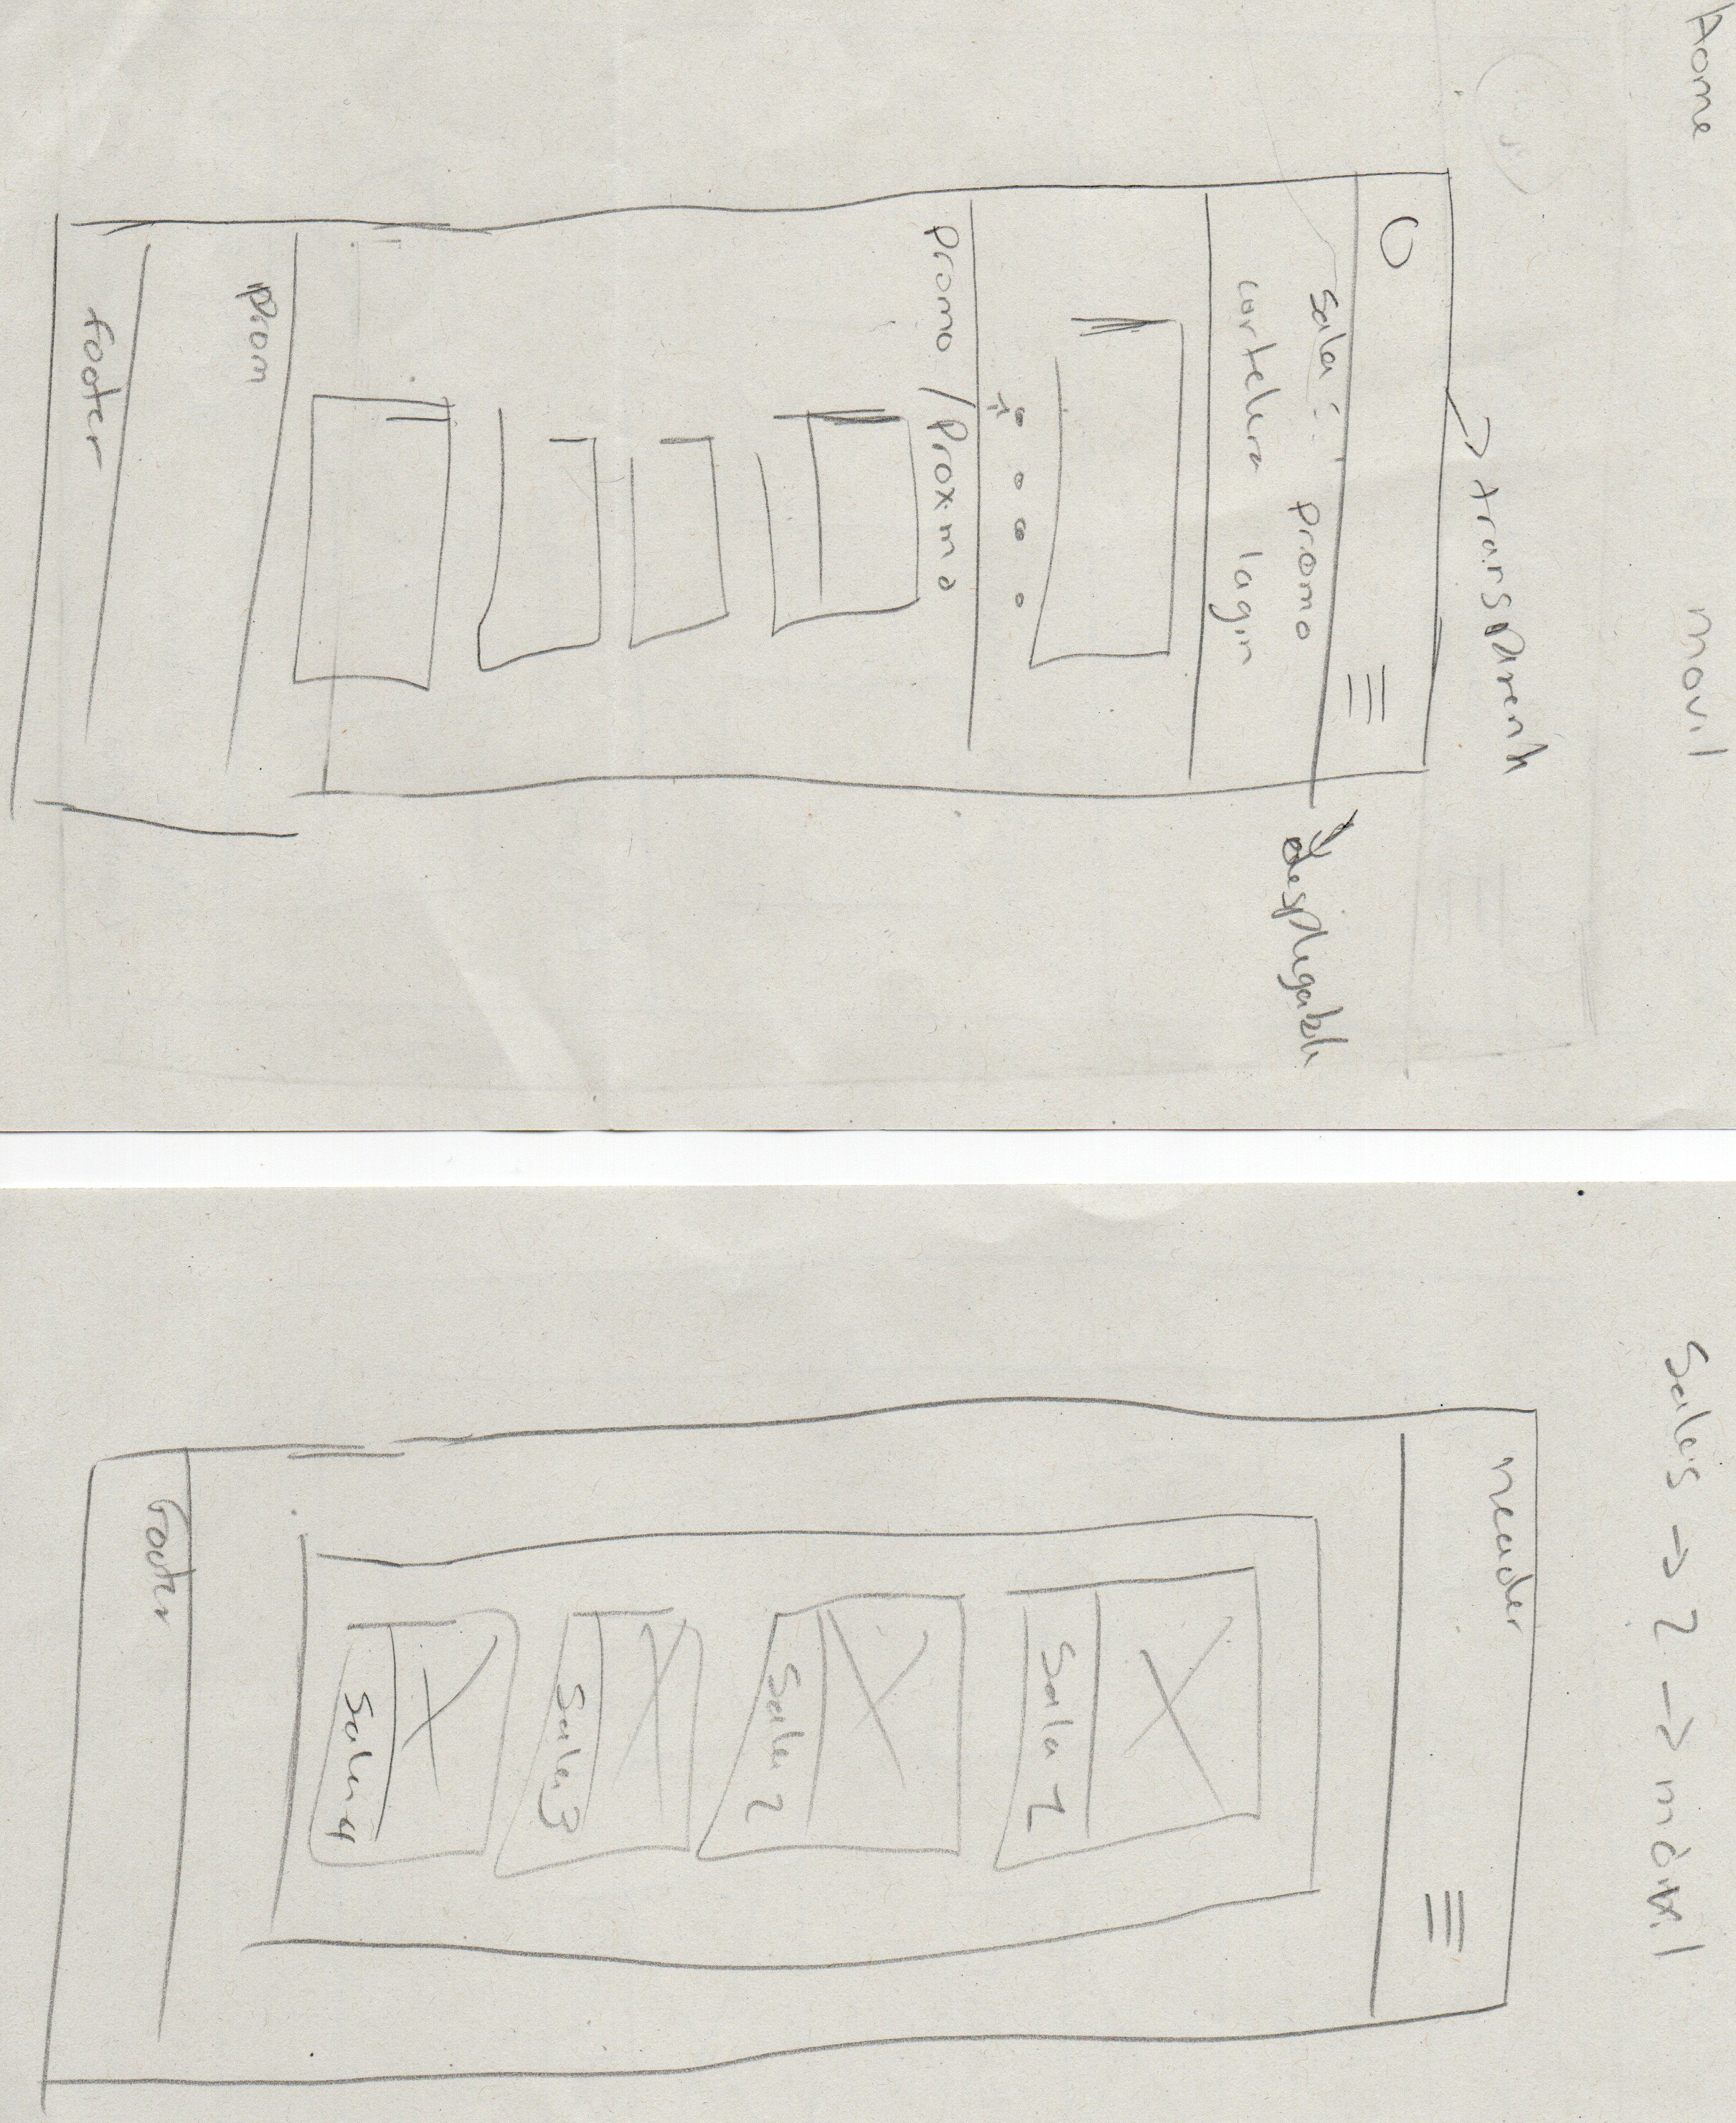 Home
movil
transparente
sala
promo
cartelera
login
desplegable
promo / Proximo
prom
footer
Salas → 2 → móvil
header
Sala 1
Sala 2
Sala 3
Sala 4
Footer